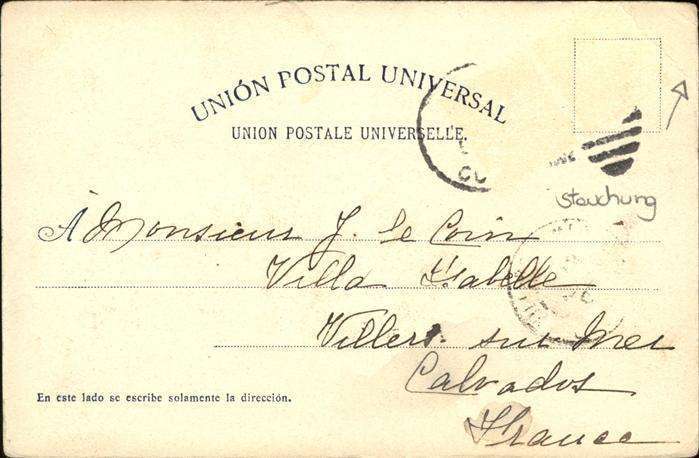 UNIÓN POSTAL UNIVERSAL
UNION POSTALE UNIVERSELLE.
Stauchung
À Monsieur J. Le Coin
Villa Isabelle
Villers sur Mer
Calvados
France
En este lado se escribe solamente la dirección.